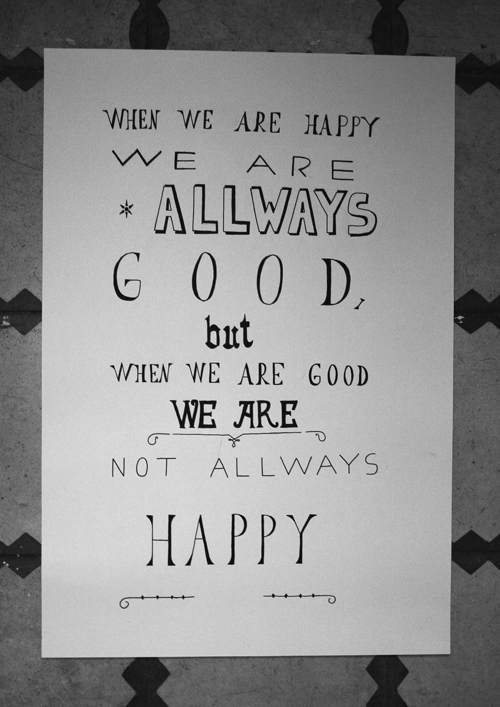 WHEN WE ARE HAPPY
WE ARE
* ALLWAYS
GOOD,
but
WHEN WE ARE GOOD
WE ARE
NOT ALLWAYS
HAPPY